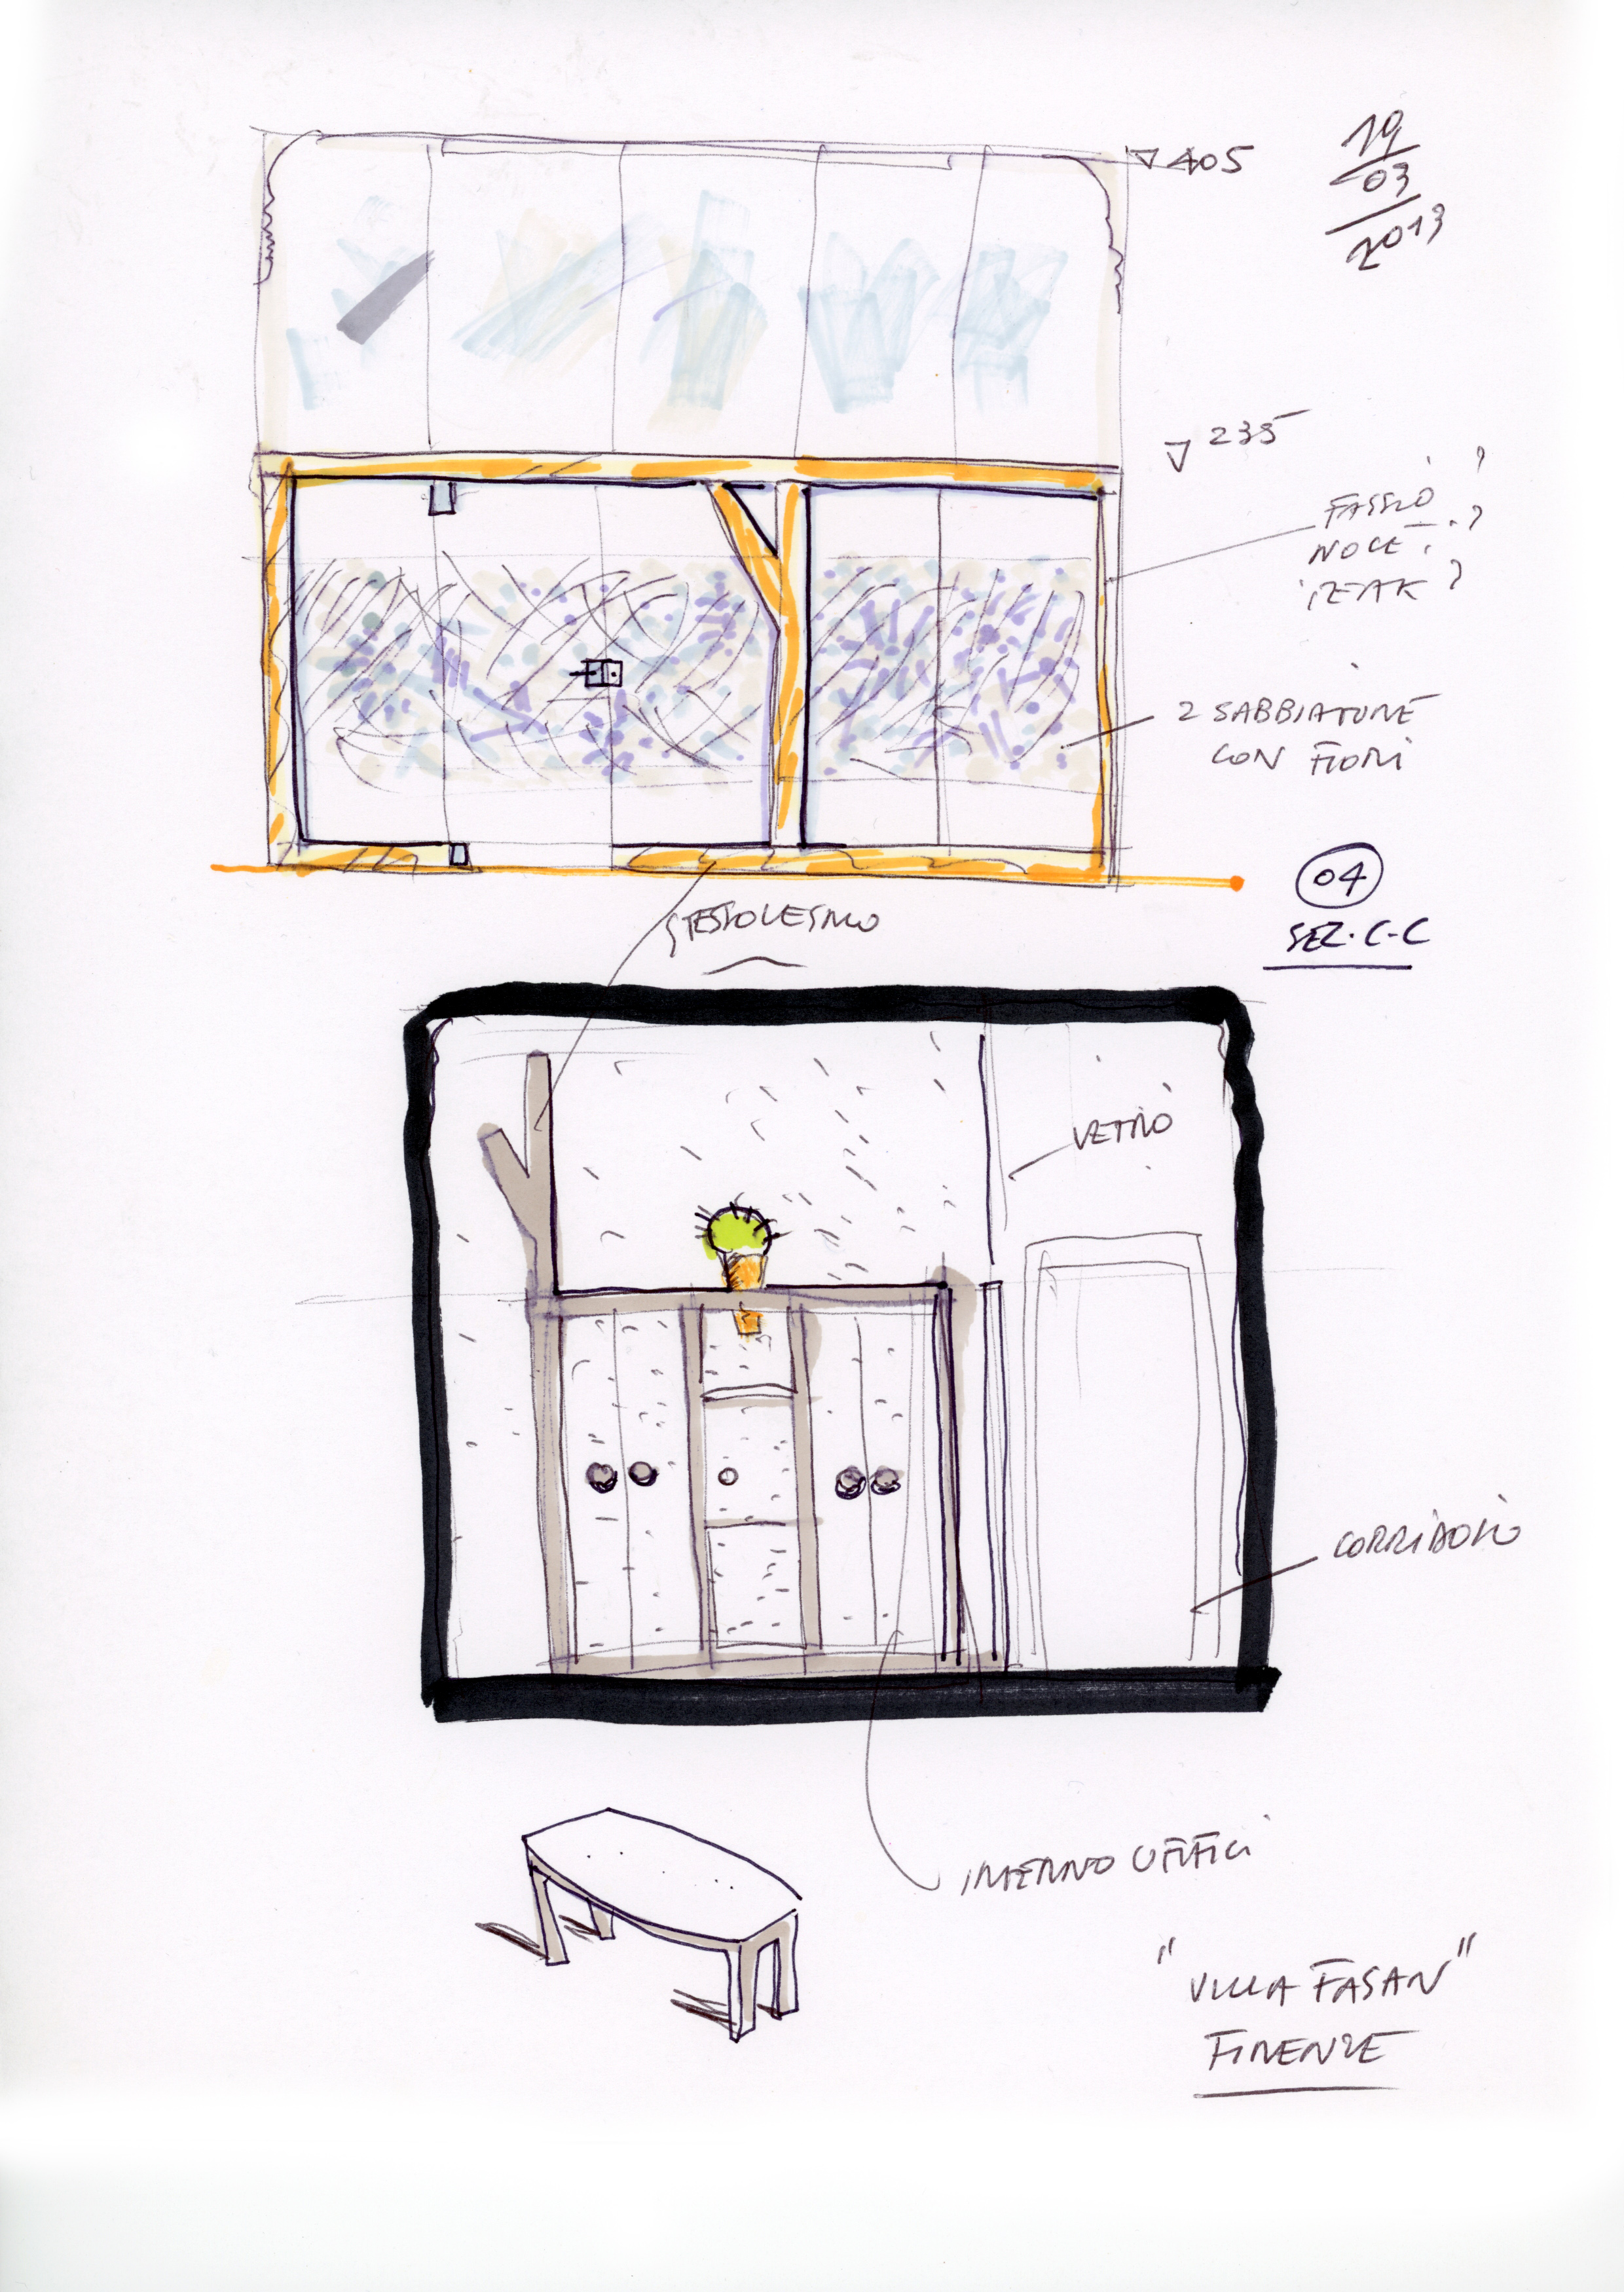 19
03
2013
405
235
FASSIÒ ?
NOCE ?
TEAK ?
2 SABBIATURE
CON FIORI
04
SEZ. C-C
STESSO LEGNO
VETRO
CORRIDOIO
INTERNO UFFICI
"VILLA FASAN"
FIRENZE